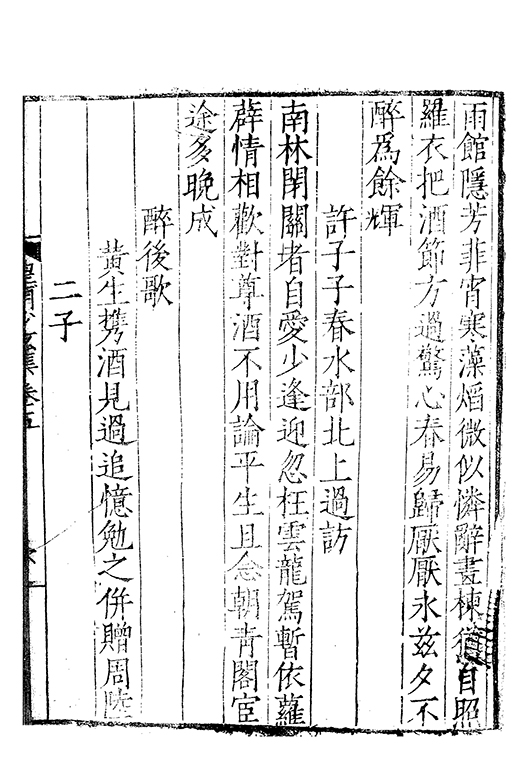 雨館隱芳菲宵寒藻熖微似憐辭畫棟
自照
羅衣把酒節方過驚心春易歸厭厭永兹夕不
醉爲餘輝
許子子春水部北上過訪
南林閉關堵自愛少逢迎忽枉雲龍駕暫依蘿
薜情相歡對尊酒不用論平生且念朝青閣宦
途多晚成
醉後歌
黄生携酒見過追憶勉之併贈周陸
二子
皇甫少玄集卷五